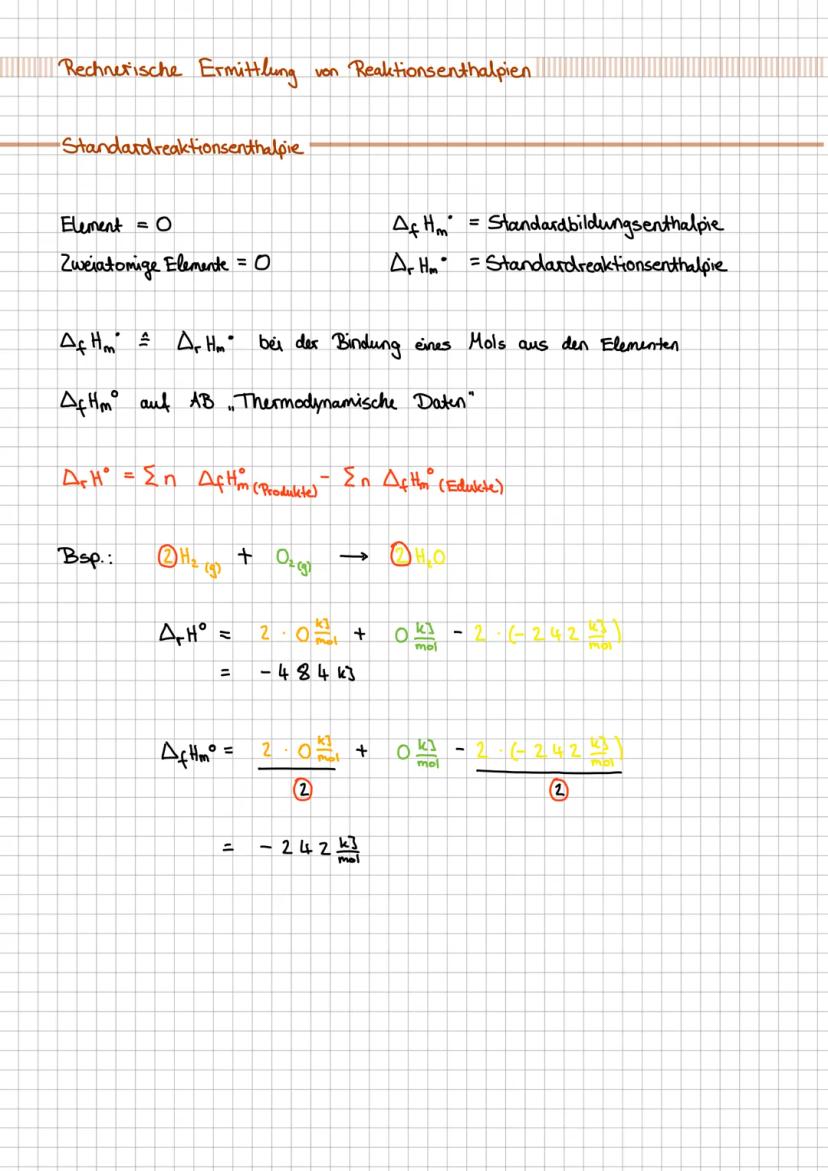 Rechnerische Ermittlung von Reaktionsenthalpien
Standardreaktionsenthalpie
Element = 0
ΔfHm° = Standardbildungsenthalpie
Zweiatomige Elemente = 0
ΔrHm° = Standardreaktionsenthalpie
ΔfHm° ≙ ΔrHm° bei der Bindung eines Mols aus den Elementen
ΔfHm° auf AB „Thermodynamische Daten"
ΔrH° = Σn ΔfHm° (Produkte) - Σn ΔfHm° (Edukte)
Bsp.: 2H₂ (g) + O₂ (g) → 2H₂O
ΔrH° = 2 · 0 kJ/mol + 0 kJ/mol - 2 · (- 242 kJ/mol)
= - 484 kJ
ΔfHm° = 2 · 0 kJ/mol + 0 kJ/mol - 2 · (- 242 kJ/mol)
2 2
= - 242 kJ/mol